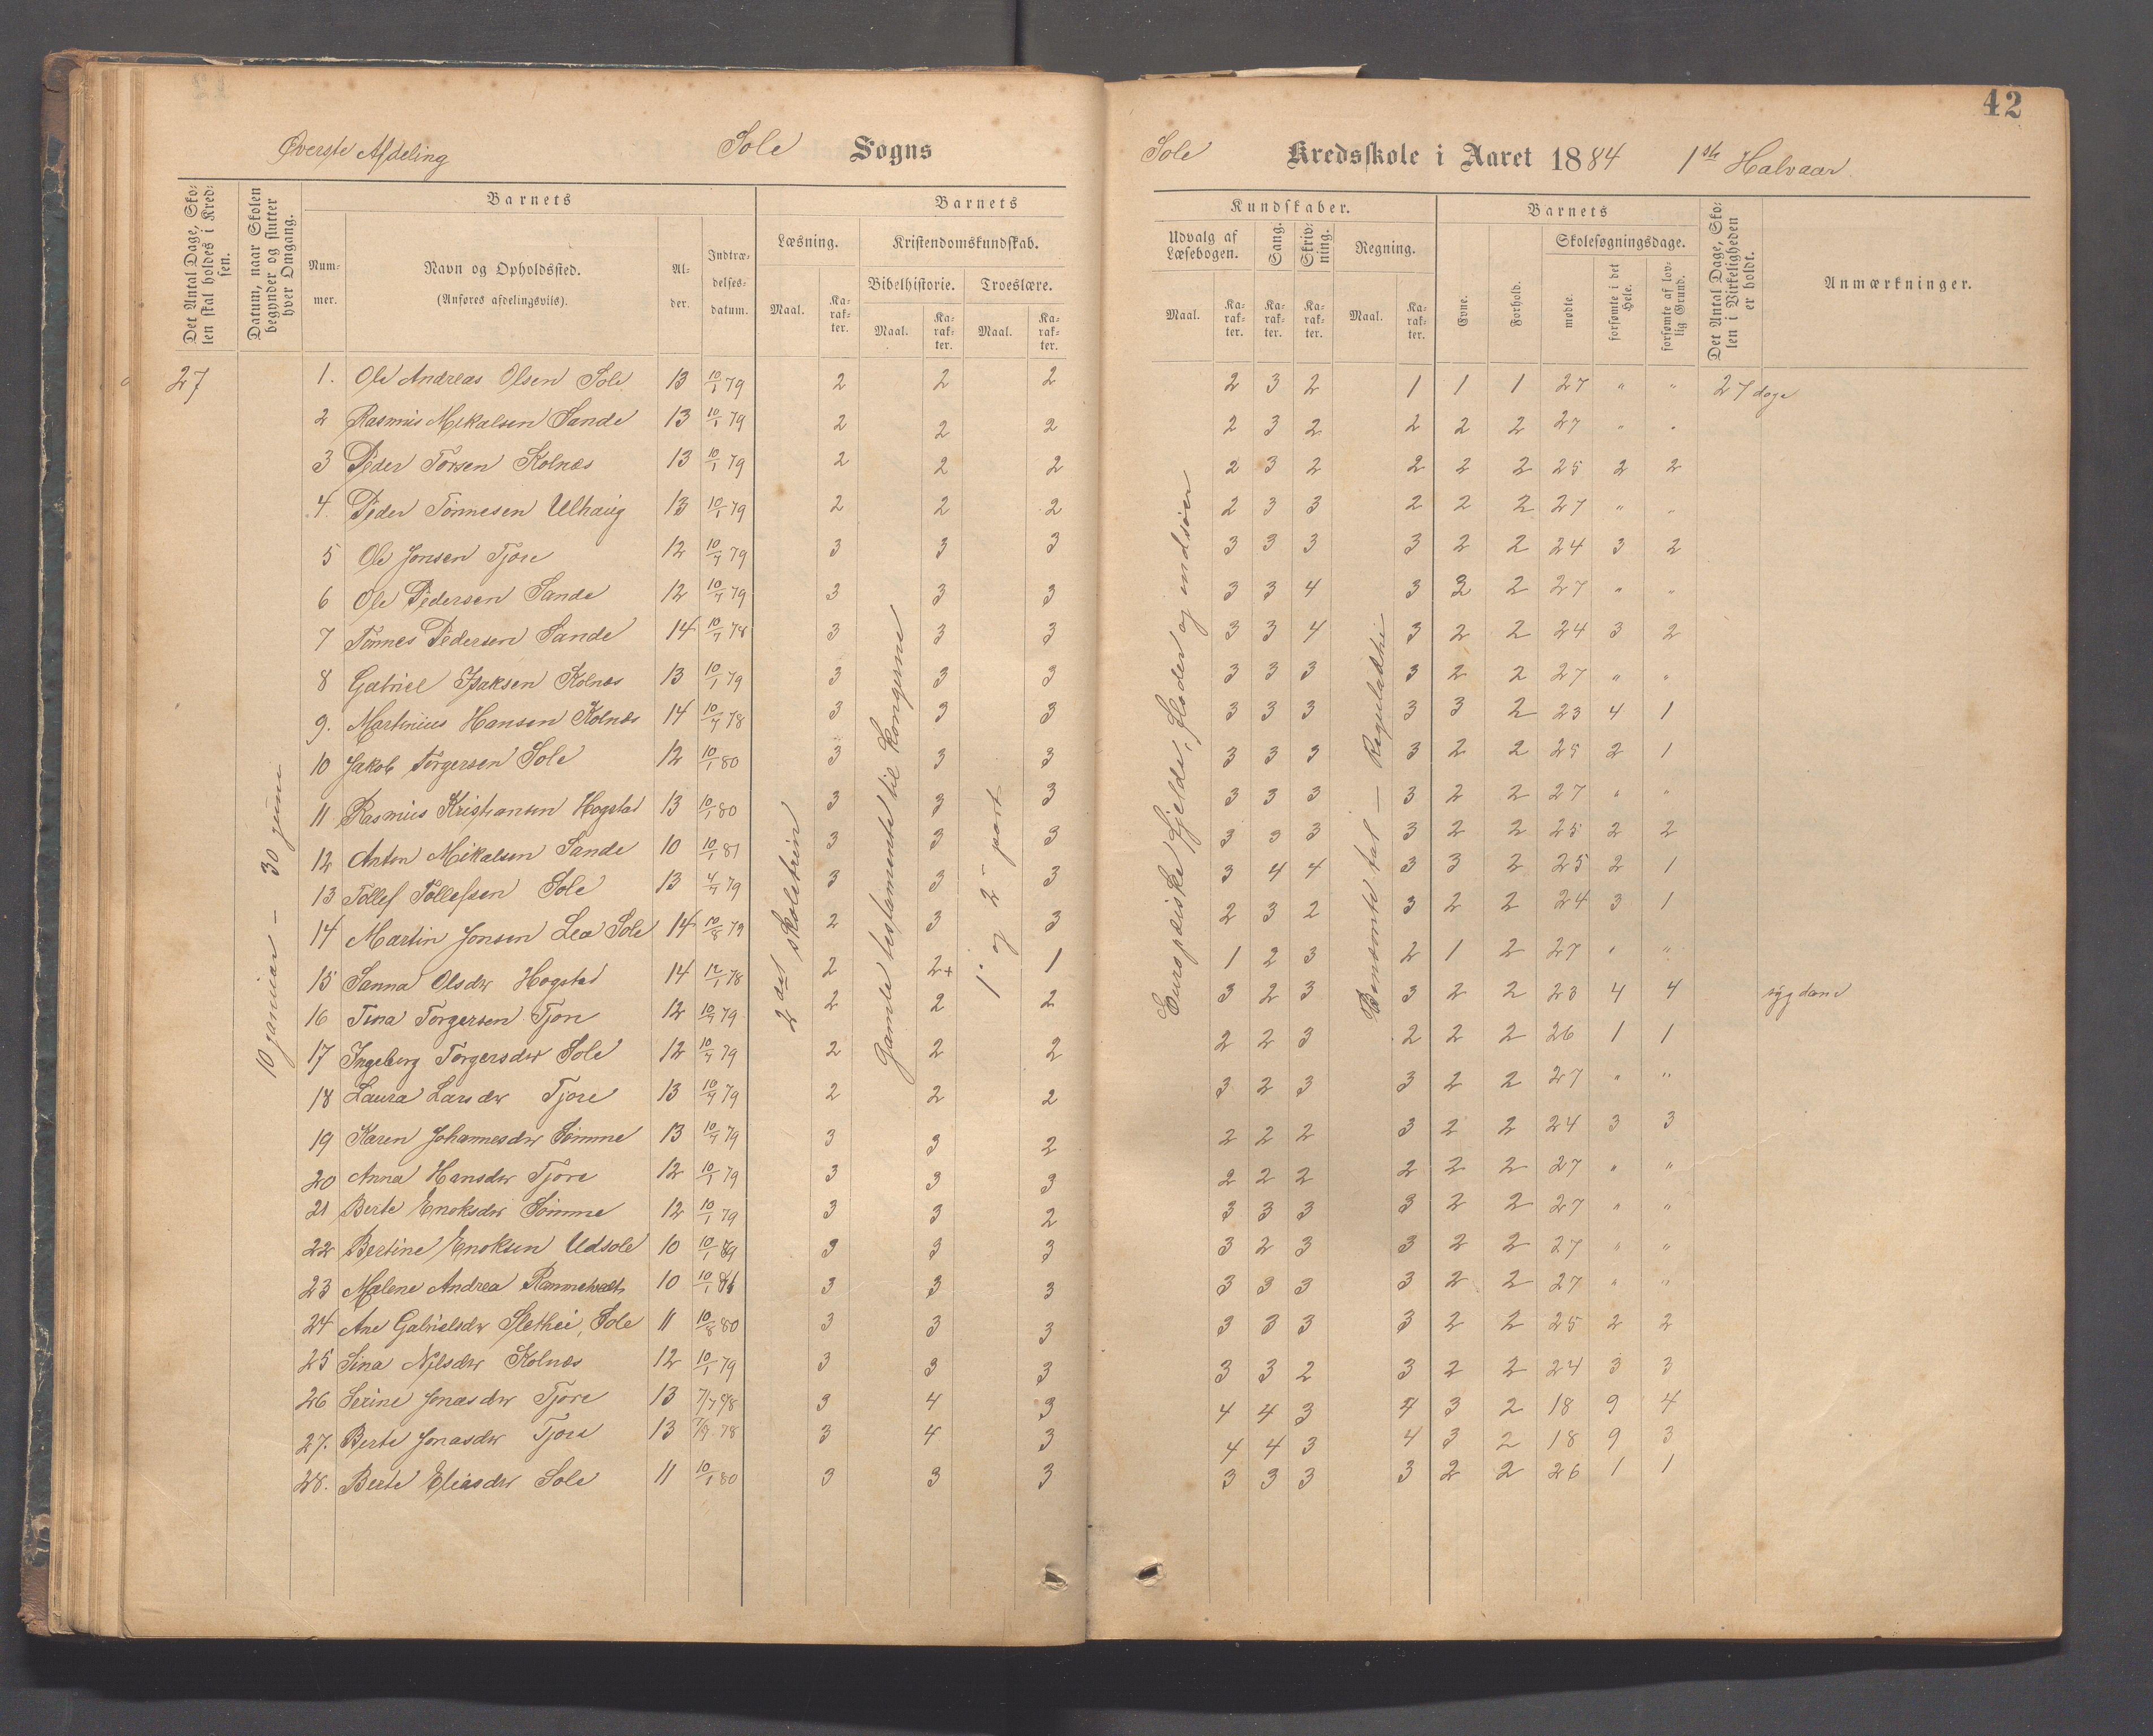 42
Øverste Afdeling Sole Sogns
Sole Kredsskole i Aaret 1884 1ste Halvaar.
Det Antal Dage, Skolen skal holdes i Kredsen.
Datum, naar Skolen begynder og slutter hver Omgang.
Barnets
Nummer.
Navn og Opholdssted.
(Anføres afdelingsviis).
Alder.
Indtrædelsesdatum.
Barnets
Læsning.
Maal. Karakter.
Kristendomskundskab.
Bibelhistorie. Troeslære.
Maal. Karakter. Maal. Karakter.
Kundskaber.
Udvalg af Læsebogen. Sang. Skrivning. Regning.
Maal. Karakter. Karakter. Karakter. Maal. Karakter.
Barnets
Evne. Forhold.
Skolesøgningsdage.
mødte. forsømte i det Hele. forsømte af lovlig Grund.
Det Antal Dage, Skolen i Virkeligheden er holdt.
Anmærkninger.
10 januar – 30 juni
2det skoletrin
Gamle testamente til kongerne
1. og 2. part
Europæiske fjelde, floder og indsøer
Benævnte tal – Reguladetri
27 1. Ole Andreas Olsen Sole 13 10/1 79 2 2 2 2 3 2 1 1 1 27 " " 27 dage
2 Rasmus Mikalsen Sande 13 10/1 79 2 2 2 2 3 2 2 2 2 27 " "
3 Peder Torsen Kolnæs 13 10/1 79 2 2 2 2 3 2 2 2 2 25 2 2
4. Peder Tønnesen Ulhaug 13 10/1 79 2 2 2 2 3 3 2 2 2 27 " "
5 Ole Jonsen Tjore 12 10/7 79 3 3 3 3 3 3 3 2 2 24 3 2
6 Ole Pedersen Sande 12 10/7 79 3 3 3 3 3 4 3 2 2 27 " "
7 Tønnes Pedersen Sande 14 10/7 78 3 3 3 3 3 4 3 2 2 24 3 2
8 Gabriel Isaksen Kolnæs 13 10/1 79 3 3 3 3 3 3 3 2 2 27 " "
9. Martinius Hansen Kolnæs 14 10/7 78 3 3 3 3 3 3 3 3 2 23 4 1
10 Jakob Torgersen Sole 12 10/1 80 3 3 3 3 3 3 3 2 2 25 2 1
11 Rasmus Kristiansen Hogstad 13 10/1 80 3 3 3 3 3 3 3 2 2 27 " "
12 Anton Mikalsen Sande 10 10/1 81 3 3 3 3 3 3 3 2 2 25 2 2
13 Tollef Tollefsen Sole 13 4/7 79 3 3 3 3 4 4 3 3 2 25 2 1
14 Martin Jonsen Lea Sole 14 10/8 79 2 3 3 2 3 2 3 2 2 24 3 1
15 Sanna Olsdtr Hogstad 14 12/1 78 2 2+ 1 1 2 3 2 1 2 27 " "
16 Tina Torgersen Tjore 12 10/7 79 2 2 2 3 2 3 3 2 2 23 4 4 sygdom
17 Ingeborg Torgersdtr Sole 12 10/7 79 2 2 2 2 2 3 2 2 2 26 1 1
18 Laura Larsdtr Tjore 13 10/7 79 2 2 2 3 2 3 3 2 2 27 " "
19 Karen Johannesdtr Sømme 13 10/7 79 3 3 2 2 2 2 3 2 2 24 3 3
20 Anna Hansdtr Tjore 12 10/1 79 3 3 3 2 2 2 2 2 2 27 " "
21 Berte Enoksdtr Sømme 12 10/1 79 3 3 2 3 3 3 3 2 2 27 " "
22 Bertine Enoksen Udsole 10 10/1 3 3 3 3 2 3 3 2 2 27 " "
23 Malene Andrea 10 10/1 3 3 3 3 3 3 3 2 2 27 " "
24 Ane Gabrielsdtr Slethei, Sole 11 10/8 80 3 3 3 3 3 3 3 2 2 25 2 2
25 Sina Nilsdtr Kolnæs 12 10/1 79 3 3 3 3 3 2 3 2 2 24 3 3
26 Serine Jonasdtr Tjore 13 3 4 3 4 4 3 4 3 2 18 9 4
27. Berte Jonasdtr Tjore 13 7/9 78 3 4 3 4 4 3 4 3 2 18 9 3
28. Berte Eliasdtr Sole 11 10/1 80 3 3 3 3 3 3 3 2 2 26 1 1